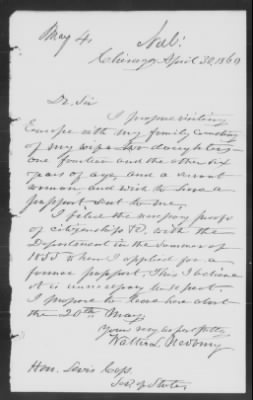 May 4.
Nat:
Chicago April 30, 1860
Dr. Sir
I propose visiting
Europe with my family consisting
of my wife two daughters
one fourteen and the other six
years of age, and a servant
woman, and wish to have a
passport sent to me.
I filed the necessary proofs
of citizenship &c, with the
Department in the summer of
1855 when I applied for a
former passport. This I believe
it is unnecessary to repeat
I propose to leave here about
the 20th May.
Your very respectfully
Walter L. Newberry
Hon. Lewis Cass
Sec. of State